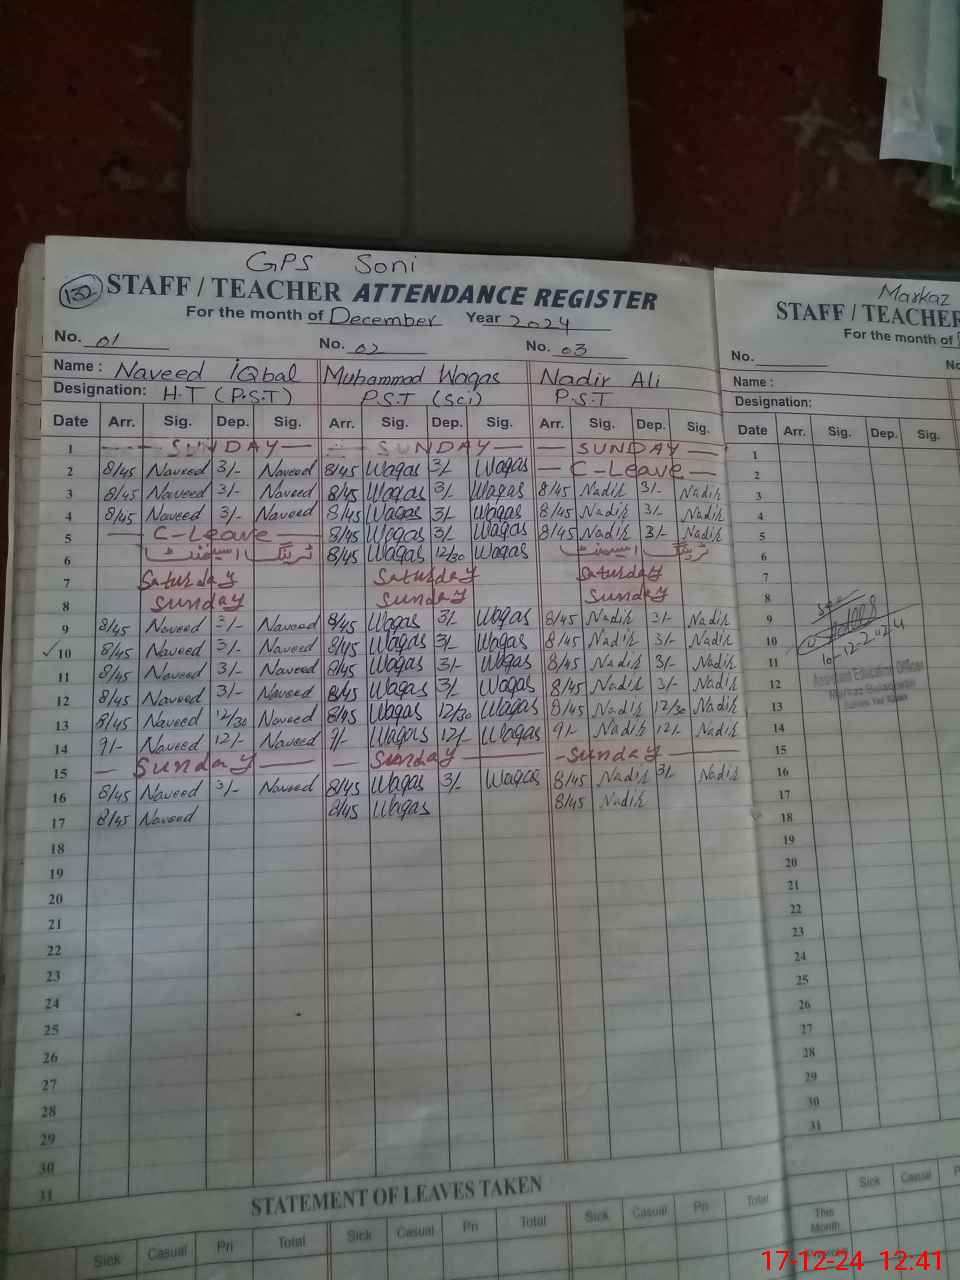 GPS Soni
150 STAFF / TEACHER ATTENDANCE REGISTER
For the month of December Year 2024
No. 01 No. 02 No. 03
Name : Naveed iqbal Muhammad Waqas Nadir Ali
Designation: H.T (P.S.T) P.S.T (Sci) P.S.T
Date Arr. Sig. Dep. Sig. Arr. Sig. Dep. Sig. Arr. Sig. Dep. Sig.
1 SUNDAY SUNDAY SUNDAY
2 8/45 Naveed 3/- Naveed 8/45 Waqas 3/- Waqas C-Leave
3 8/45 Naveed 3/- Naveed 8/45 Waqas 3/- Waqas 8/45 Nadir 3/- Nadir
4 8/45 Naveed 3/- Naveed 8/45 Waqas 3/- Waqas 8/45 Nadir 3/- Nadir
5 C-Leave 8/45 Waqas 3/- Waqas 8/45 Nadir 3/- Nadir
6 8/45 Waqas 12/30 Waqas
7 Saturday Saturday Saturday
8 Sunday Sunday Sunday
9 8/45 Naveed 3/- Naveed 8/45 Waqas 3/- Waqas 8/45 Nadir 3/- Nadir
✓10 8/45 Naveed 3/- Naveed 8/45 Waqas 3/- Waqas 8/45 Nadir 3/- Nadir
11 8/45 Naveed 3/- Naveed 8/45 Waqas 3/- Waqas 8/45 Nadir 3/- Nadir
12 8/45 Naveed 3/- Naveed 8/45 Waqas 3/- Waqas 8/45 Nadir 3/- Nadir
13 8/45 Naveed 12/30 Naveed 8/45 Waqas 12/30 Waqas 8/45 Nadir 12/30 Nadir
14 9/- Naveed 12/- Naveed 9/- Waqas 12/- Waqas 9/- Nadir 12/- Nadir
15 Sunday Sunday Sunday
16 8/45 Naveed 3/- Naveed 8/45 Waqas 3/- Waqas 8/45 Nadir 3/- Nadir
17 8/45 Naveed 8/45 Waqas 8/45 Nadir
18
19
20
21
22
23
24
25
26
27
28
29
30
31
STATEMENT OF LEAVES TAKEN
Sick Casual Pri Total Sick Casual Pri Total Sick Casual Pri Total
Markaz
STAFF / TEACHER
For the month of
No.
Name :
Designation:
Date Arr. Sig. Dep. Sig.
1
2
3
4
5
6
7
8
9
10
10-12-2024
11
Assistant Education Officer
12
13
14
15
16
17
18
19
20
21
22
23
24
25
26
27
28
29
30
31
Sick Casual
This Month
17-12-24 12:41